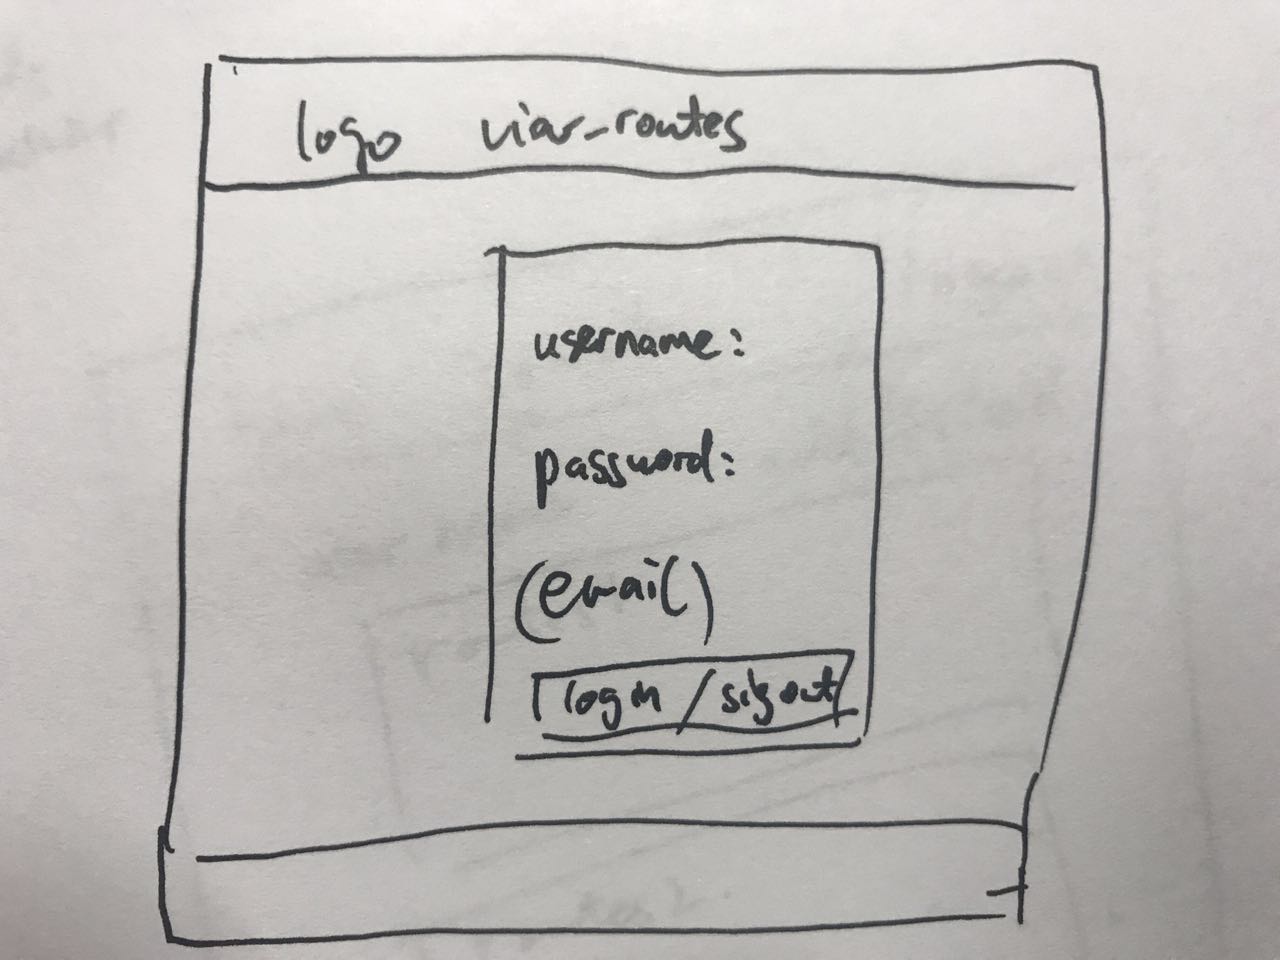 logo viav-routes
username:
password:
(email)
login / sigout